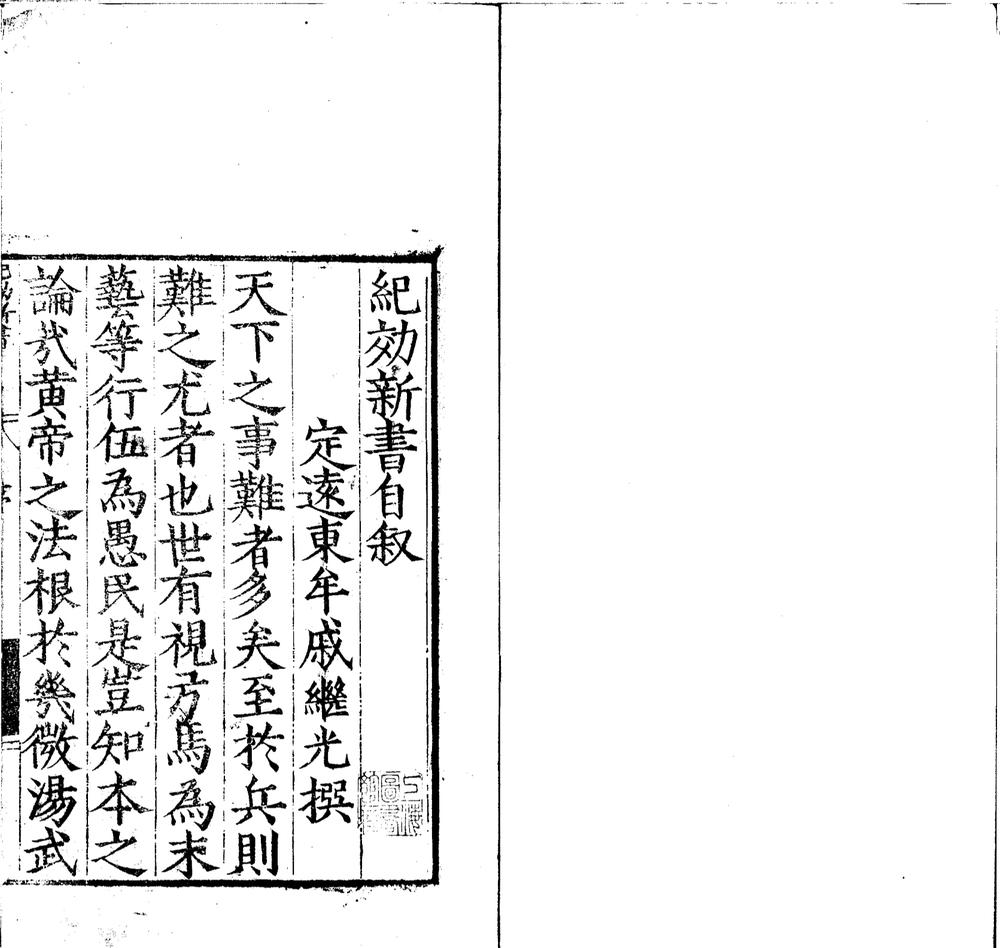 紀効新書自叙
定遠東牟戚繼光撰
天下之事難者多矣至於兵則
難之尤者也世有視弓馬為末
藝等行伍為愚民是豈知本之
論哉黃帝之法根於幾微湯武